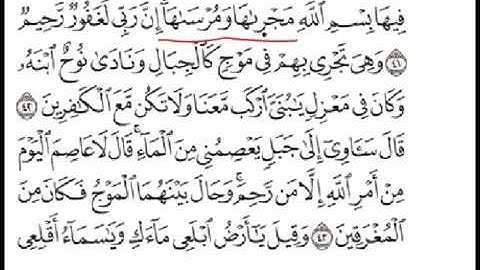 فِيهَا بِسْمِ ٱللَّهِ مَجْر۪ىٰهَا وَمُرْسَىٰهَآ إِنَّ رَبِّى لَغَفُورٌ رَّحِيمٌ
﴿٤١﴾ وَهِىَ تَجْرِى بِهِمْ فِى مَوْجٍ كَٱلْجِبَالِ وَنَادَىٰ نُوحٌ ٱبْنَهُۥ
وَكَانَ فِى مَعْزِلٍ يَٰبُنَىَّ ٱرْكَب مَّعَنَا وَلَا تَكُن مَّعَ ٱلْكَٰفِرِينَ ﴿٤٢﴾
قَالَ سَـَٔاوِىٓ إِلَىٰ جَبَلٍ يَعْصِمُنِى مِنَ ٱلْمَآءِ ۚ قَالَ لَا عَاصِمَ ٱلْيَوْمَ
مِنْ أَمْرِ ٱللَّهِ إِلَّا مَن رَّحِمَ ۚ وَحَالَ بَيْنَهُمَا ٱلْمَوْجُ فَكَانَ مِنَ
ٱلْمُغْرَقِينَ ﴿٤٣﴾ وَقِيلَ يَٰٓأَرْضُ ٱبْلَعِى مَآءَكِ وَيَٰسَمَآءُ أَقْلِعِى